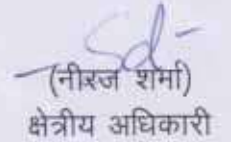 Sd-
(नीरज शर्मा)
क्षेत्रीय अधिकारी